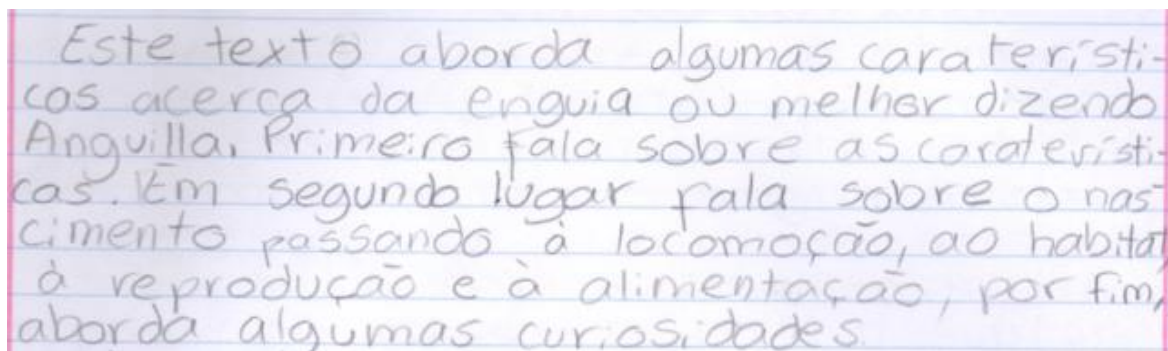 Este texto aborda algumas caraterísti-
cas acerca da enguia ou melhor dizendo
Anguilla. Primeiro fala sobre as caraterísti-
cas. Em segundo lugar fala sobre o nas-
cimento passando à locomoção, ao habitat,
à reprodução e à alimentação, por fim,
aborda algumas curiosidades.